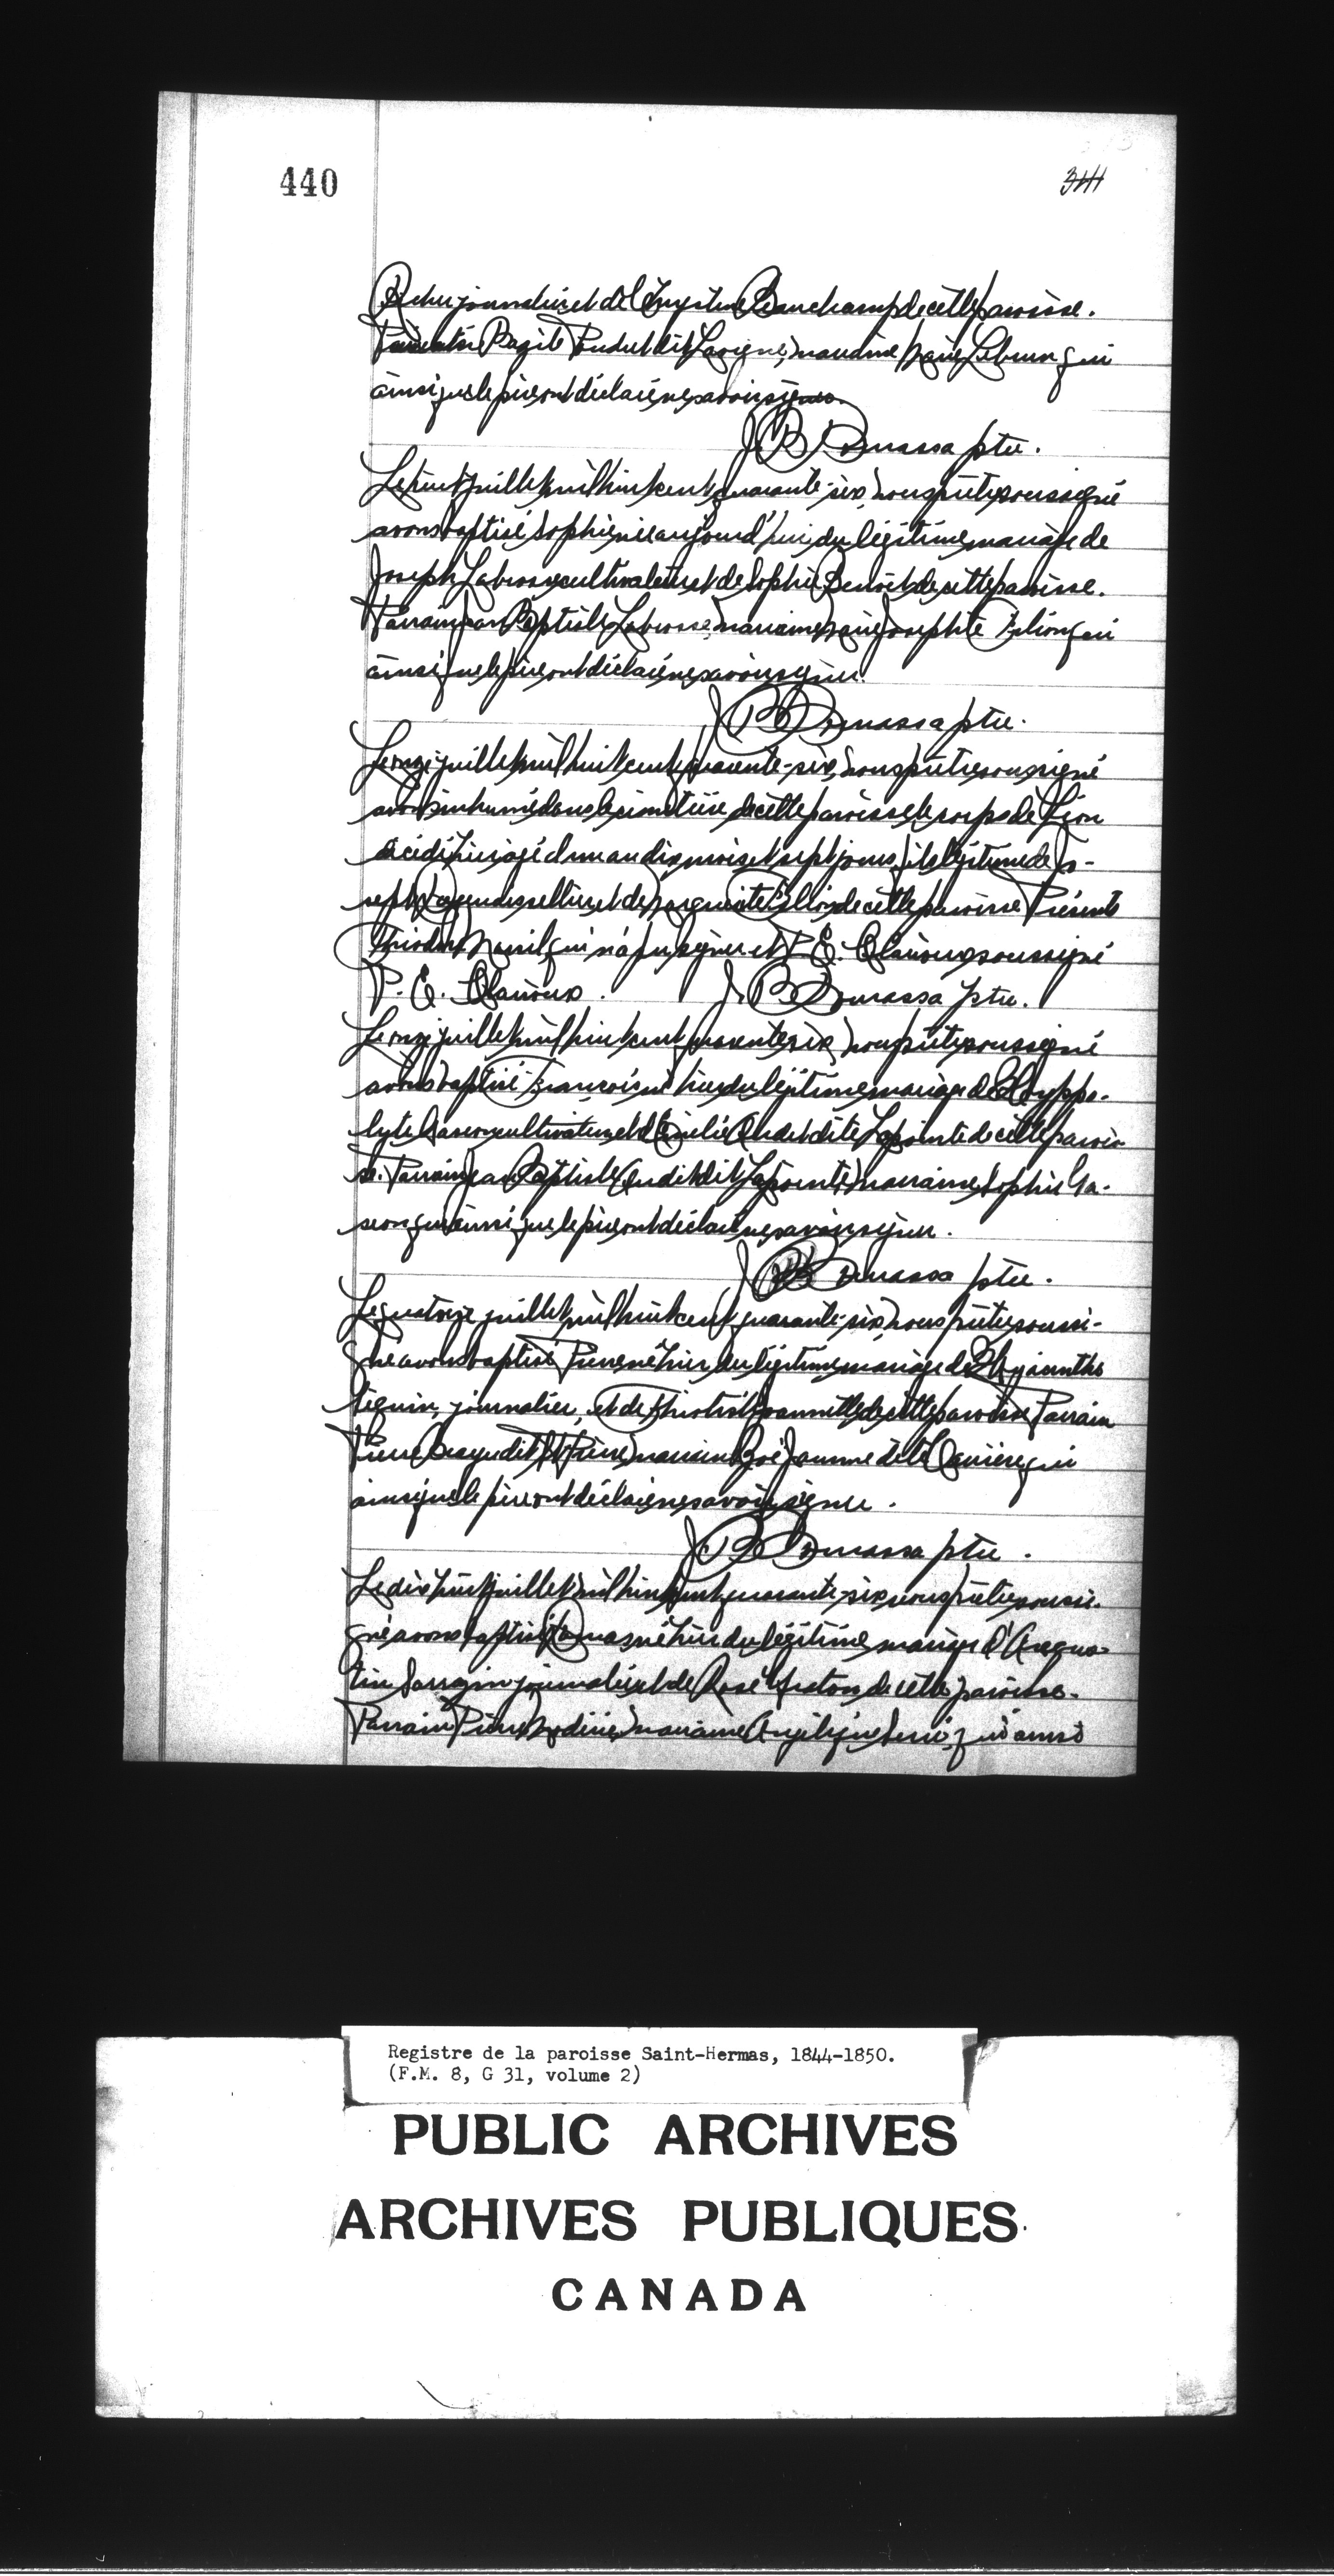 440
344
journalier et de Beauchamp de cette paroisse.
Parrain Bazile dit Lavigne, marraine Marie Lebrun qui
ainsi que le père ont déclaré ne savoir signer.
J B Dumassa ptre.
Le huit juillet mil huit cent quarante-six, nous prêtre soussigné
avons baptisé Sophie née aujourd'hui du légitime mariage de
Joseph Labrosse cultivateur et de Sophie Benoit de cette paroisse.
Parrain Jean Baptiste Labrosse, marraine Marie Josephte Filion qui
ainsi que le père ont déclaré ne savoir signer.
J B Dumassa ptre.
Le onze juillet mil huit cent quarante-six, nous prêtre soussigné
avons inhumé dans le cimetière de cette paroisse le corps de Léon
décédé hier âgé d'un an dix mois et sept jours, fils légitime de Jo-
seph sellier et de Marguerite Filion de cette paroisse Présents
qui n'a pu signer et P. E. Clairoux soussigné
P. E. Clairoux. J. B Dumassa ptre.
Le onze juillet mil huit cent quarante six, nous prêtre soussigné
avons baptisé François né hier du légitime mariage d'Hyppo-
lyte Gascon cultivateur et d'Emélie Audet dite Lapointe de cette parois-
se. Parrain Jean Baptiste Audet dit Lapointe, marraine Sophie Ga-
scon qui ainsi que le père ont déclaré ne savoir signer.
J B Dumassa ptre.
Le quatorze juillet mil huit cent quarante-six, nous prêtre soussi-
gné avons baptisé Pierre né hier du légitime mariage d'Hyacinthe
Séguin, journalier, et de de cette paroisse Parrain
Pierre dit St Pierre, marraine Zoé dite qui
ainsi que le père ont déclaré ne savoir signer.
J B Dumassa ptre.
Le dix huit juillet mil huit cent quarante-six nous prêtre soussi-
gné avons baptisé Thomas né hier du légitime mariage d'Augus-
tin Sarrazin journalier et de Rose de cette paroisse.
Parrain Pierre marraine Angélique qui ainsi
Registre de la paroisse Saint-Hermas, 1844-1850.
(F.M. 8, G 31, volume 2)
PUBLIC ARCHIVES
ARCHIVES PUBLIQUES
CANADA